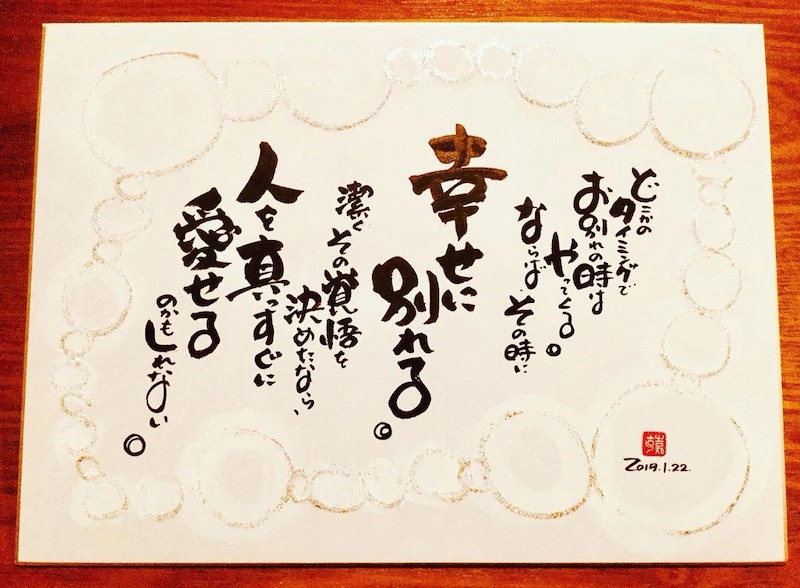 どこかの
タイミングで
お別れの時は
やってくる。
ならば その時に
幸せに
別れる。
潔く その覚悟を
決めたなら、
人を 真っすぐに
愛せる
のかもしれない。
2019.1.22.